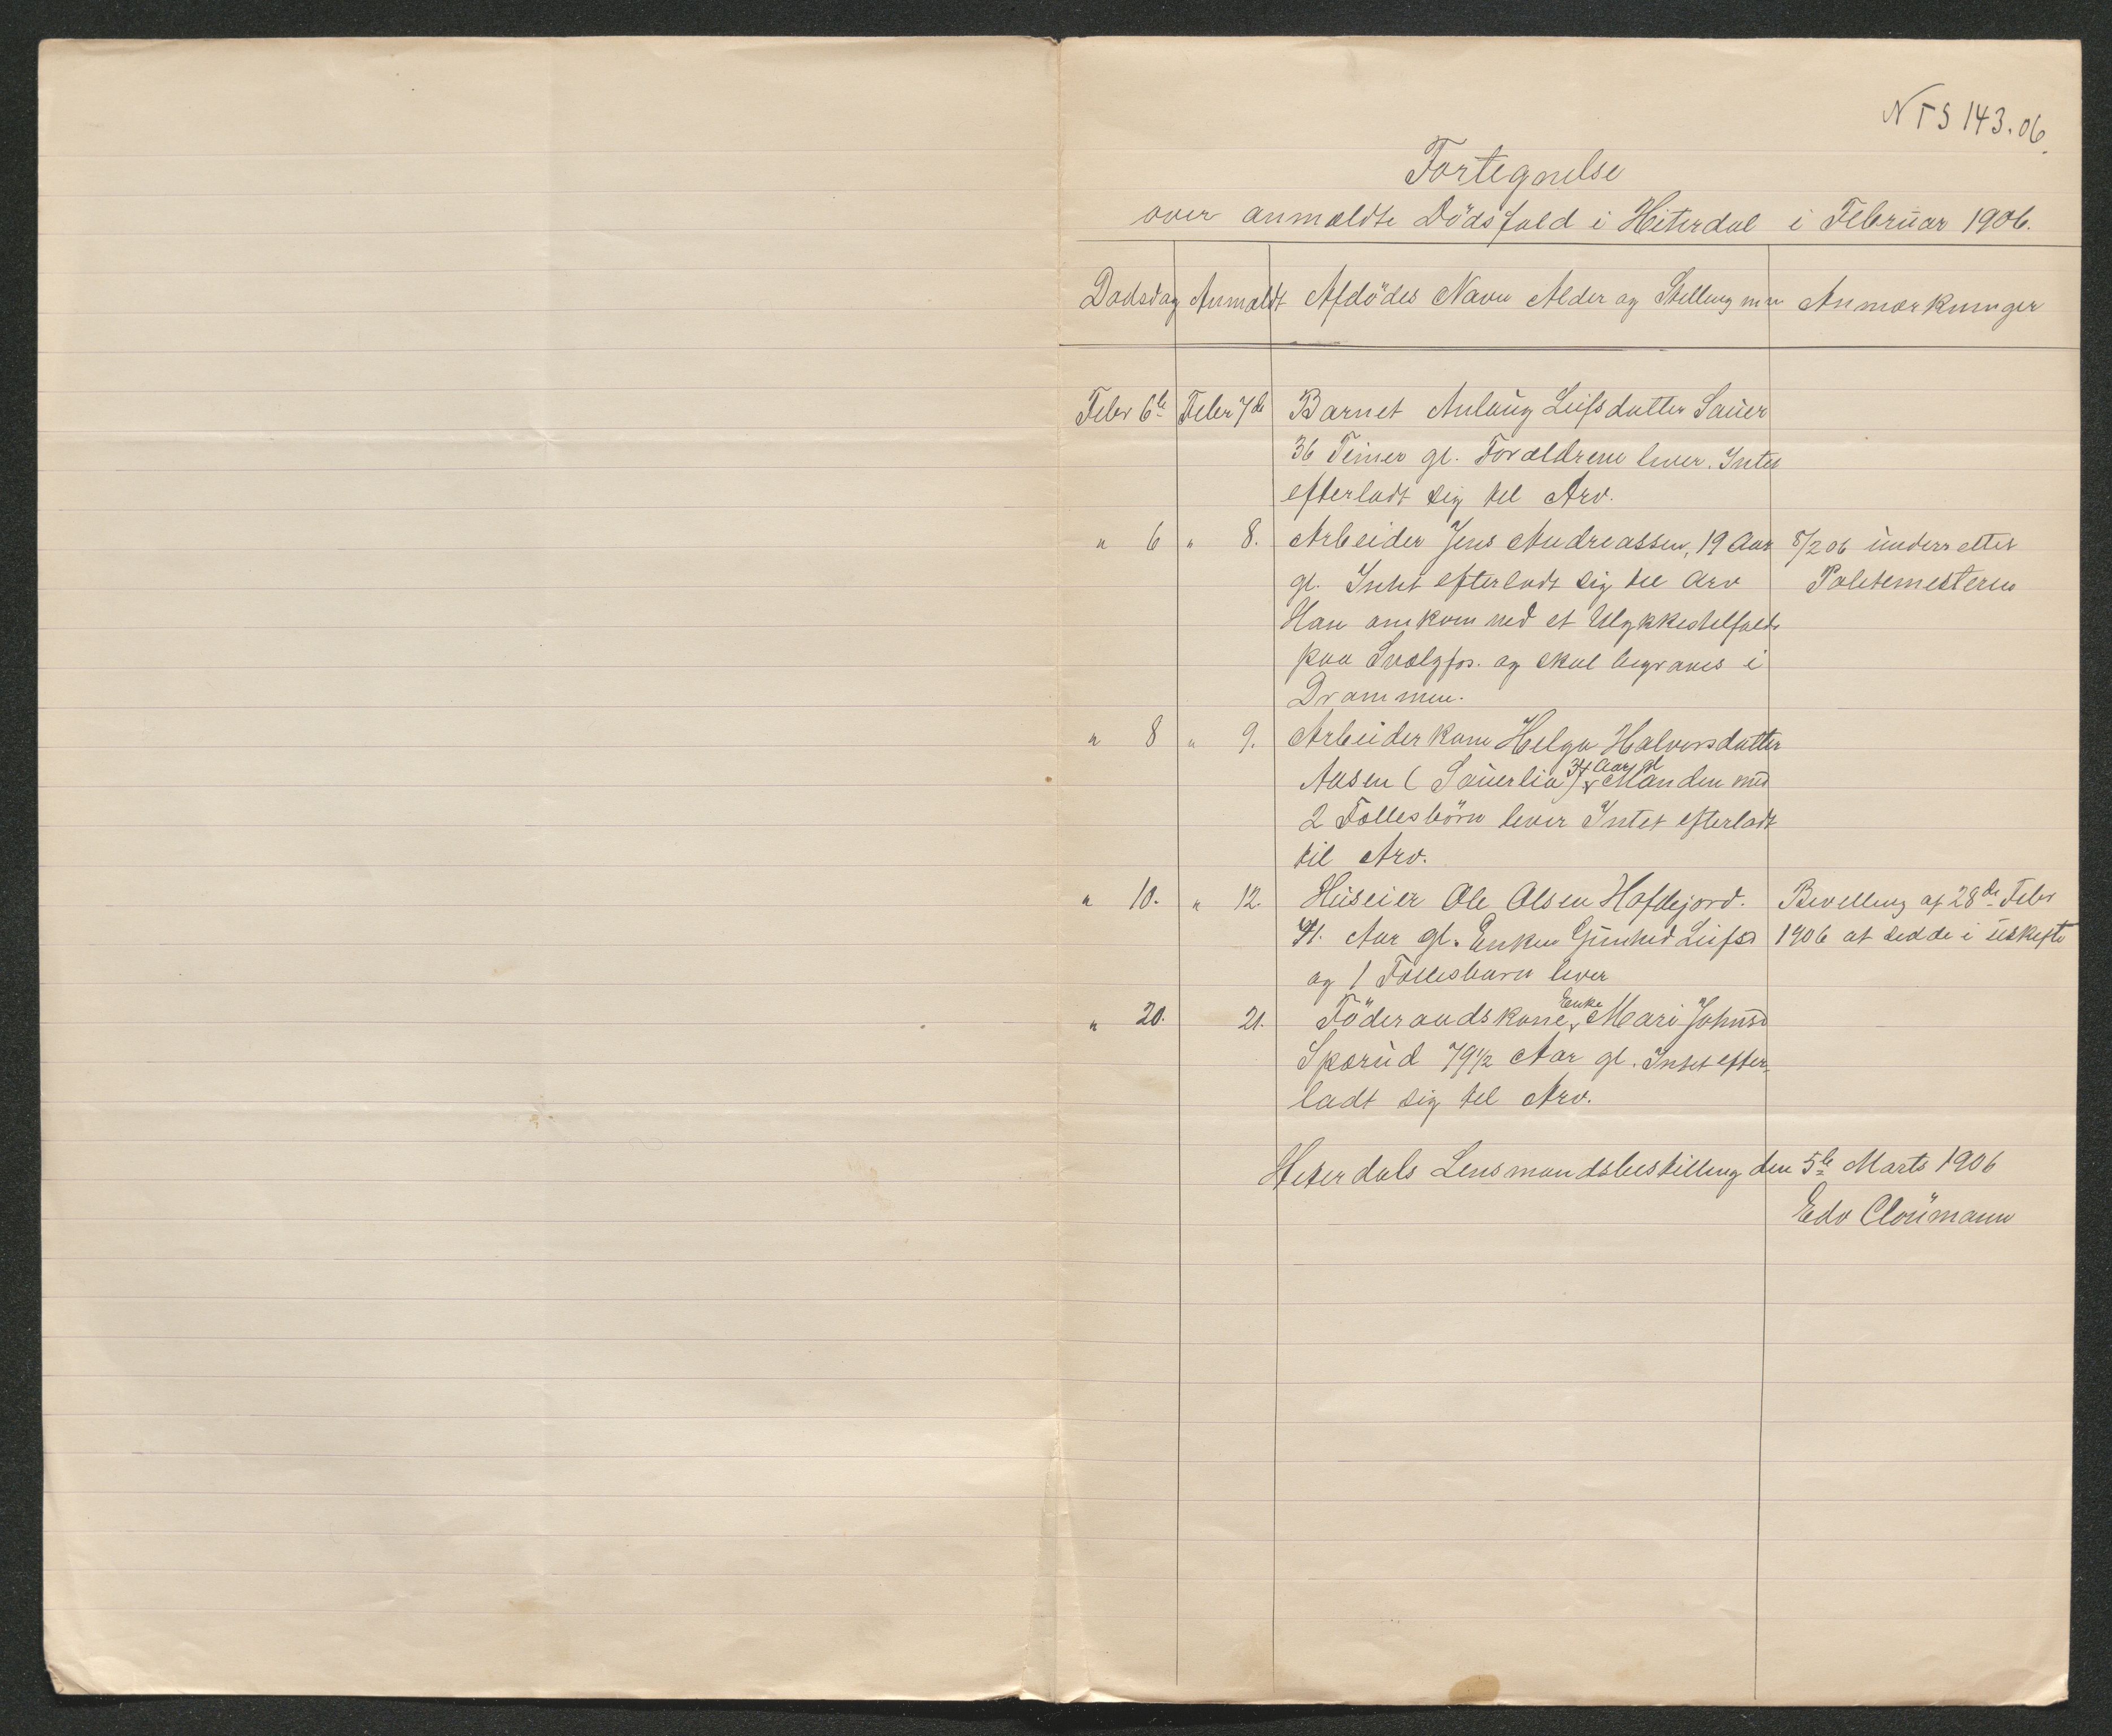 NTS 143.06.
Fortegnelse
over anmeldte Dödsfald i Hiterdal i Februar 1906.
Dødsdag Anmeldt Afdödes Navn Alder og Stilling m.m. Anmærkninger
Febr 6te Febr 7de Barnet Anlaug Leifsdatter Sauer
36 Timer gl. Forældrene lever. Intet
efterladt sig til Arv.
" 6 " 8. Arbeider Jens Andreassen, 19 Aar 8/2 06 underrettet
gl. Intet efterladt sig til Arv Politimesteren
Han omkom ved et Ulykkestilfælde
paa Svælgfos. og skal begraves i
Drammen.
" 8 " 9. Arbeiderkone Helga Halvorsdatter
Aasen (Sauerlia) 34 Aar gl Manden med
2 Fællesbörn lever Intet efterladt
til Arv.
" 10. " 12. Huseier Ole Olsen Hofdejord. Bevilling af 28de Febr
Aar gl. Enken Gunhild Leifsd 1906 at sidde i uskifte
og 1 Fællesbarn lever
" 20. 21. Föderaadskone, Enke Mari Johnsd
Sparud 79 1/2 Aar gl. Intet efter-
ladt sig til Arv.
Hiterdals Lensmandsbestilling den 5te Marts 1906
Edv Cloumann